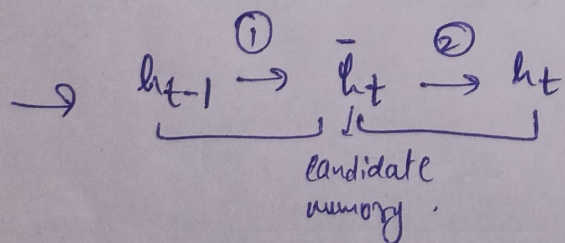 ① ②
→ h_{t-1} → h̄_t → h_t
candidate
memory.